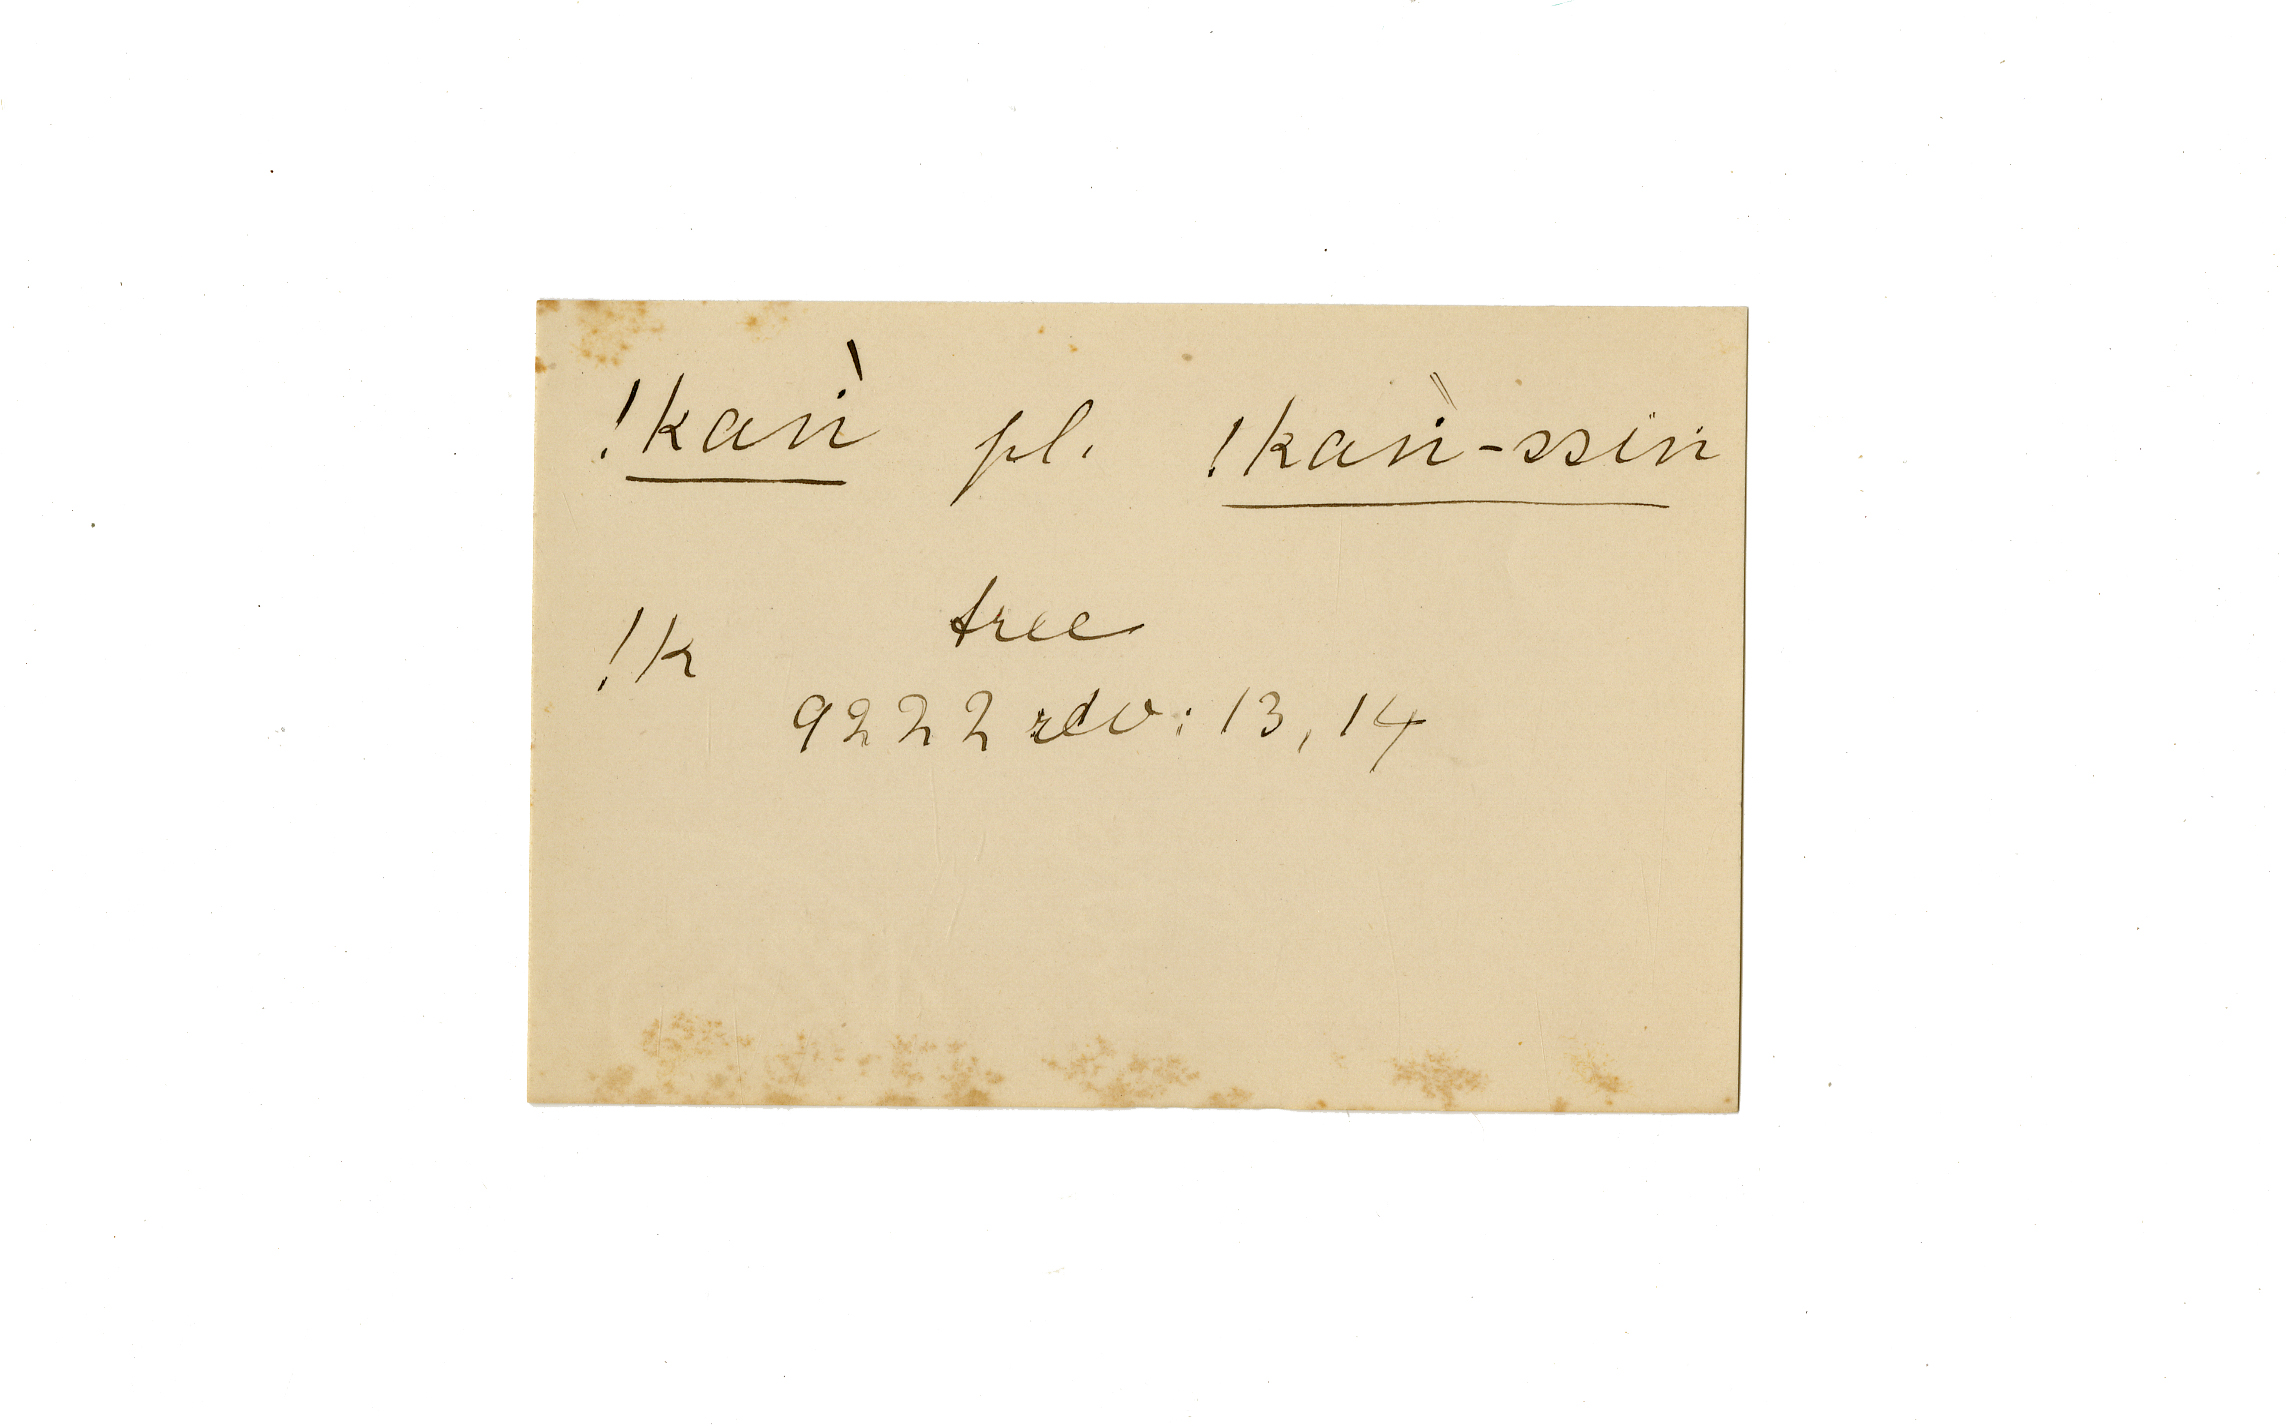 !kaṅ̀ pl. !kaṅ̀-ssiṅ
tree
!k
9222 rev: 13, 14